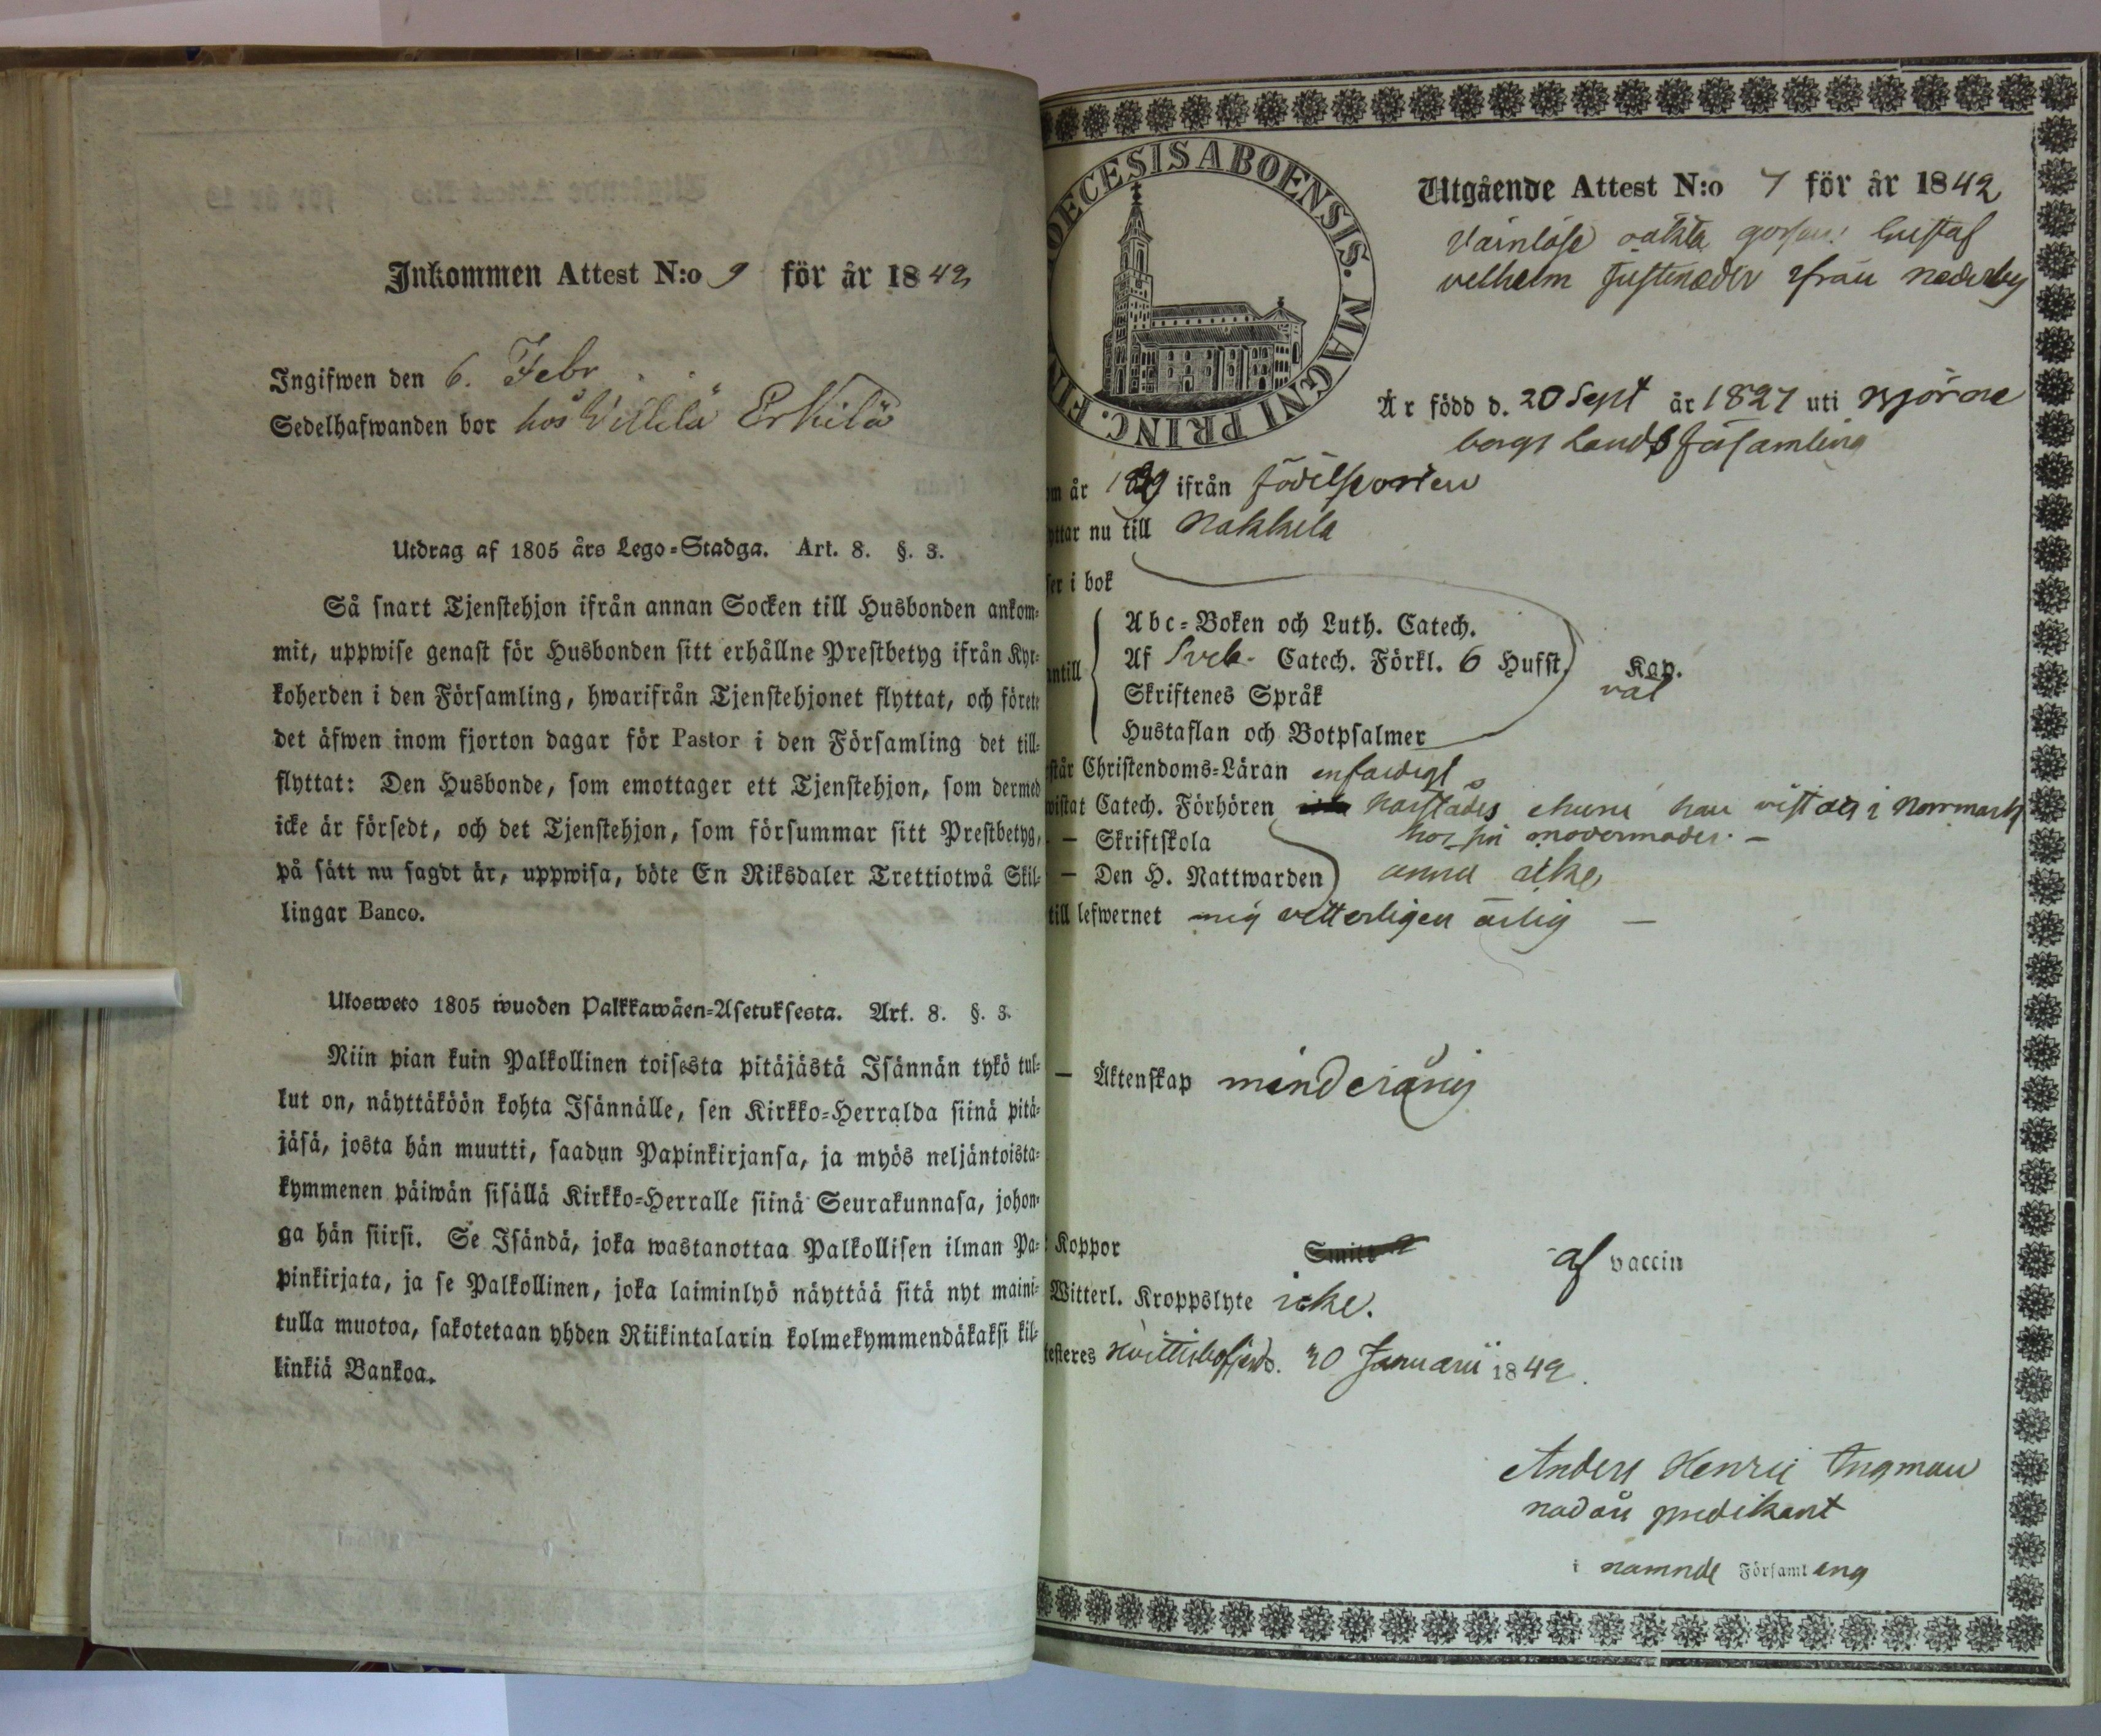 Inkommen Attest N:o 9 för år 1842
Ingifwen den 6. Febr.
Sedelhafwanden bor hos Villilä Erkilä
Utdrag af 1805 års Lego=Stadga. Art. 8. §. 3.
Så snart Tjenstehjon ifrån annan Socken till Husbonden ankom=
mit, uppwise genast för Husbonden sitt erhållne Prestbetyg ifrån Kyr=
koherden i den Församling, hwarifrån Tjenstehjonet flyttat, och förete
det äfwen inom fjorton dagar för Pastor i den Församling det till=
flyttat: Den Husbonde, som emottager ett Tjenstehjon, som dermed
icke är försedt, och det Tjenstehjon, som försummar sitt Prestbetyg,
på sätt nu sagdt är, uppwisa, böte En Riksdaler Trettiotwå Skil=
lingar Banco.
Ulosweto 1805 wuoden Palkkawäen=Asetuksesta. Art. 8. §. 3.
Niin pian kuin Palkollinen toisesta pitäjästä Isännän tykö tul=
lut on, näyttäköön kohta Isännälle, sen Kirkko=Herralda siinä pitä=
jäsä, josta hän muutti, saadun Papinkirjansa, ja myös neljäntoista=
kymmenen päiwän sisällä Kirkko=Herralle siinä Seurakunnasa, johon=
ga hän siirsi. Se Isändä, joka wastanottaa Palkollisen ilman Pa=
pinkirjata, ja se Palkollinen, joka laiminlyö näyttää sitä nyt maini=
tulla muotoa, sakotetaan yhden Riikintalarin kolmekymmendäkaksi kil=
linkiä Bankoa.
OECESIS ABOENSIS. MAGNI PRINC. FIN
Utgående Attest N:o 7 för år 1842
Värnlöse oäkta gossen Gustaf
velhelm Justinæder ifrån nederby
Är född d. 20 Sept år 1827 uti Björne
borgs Lands församling
m år ifrån födelseorten
yttar nu till Nakkila
ser i bok
Abc=Boken och Luth. Catech.
Af Sveb. Catech. Förkl. 6 Hufst. Kap.
väl
ntill
Skriftenes Språk
Hustaflan och Botpsalmer
står Christendoms=Läran enfaldigt
wistat Catech. Förhören härstädes ehuru han vistats i Norrmark
— Skriftskola hos sin modermoder. —
— Den H. Nattwarden ännu icke
till lefwernet mig vetterligen ärlig —
— Äktenskap minderårig
Koppor af vaccin
Witterl. Kroppslyte icke.
testeres Hvittisbofjerd. 30 Januarii 1842.
Anders Henric Ingman
nådår predikant
i nämnde Församling